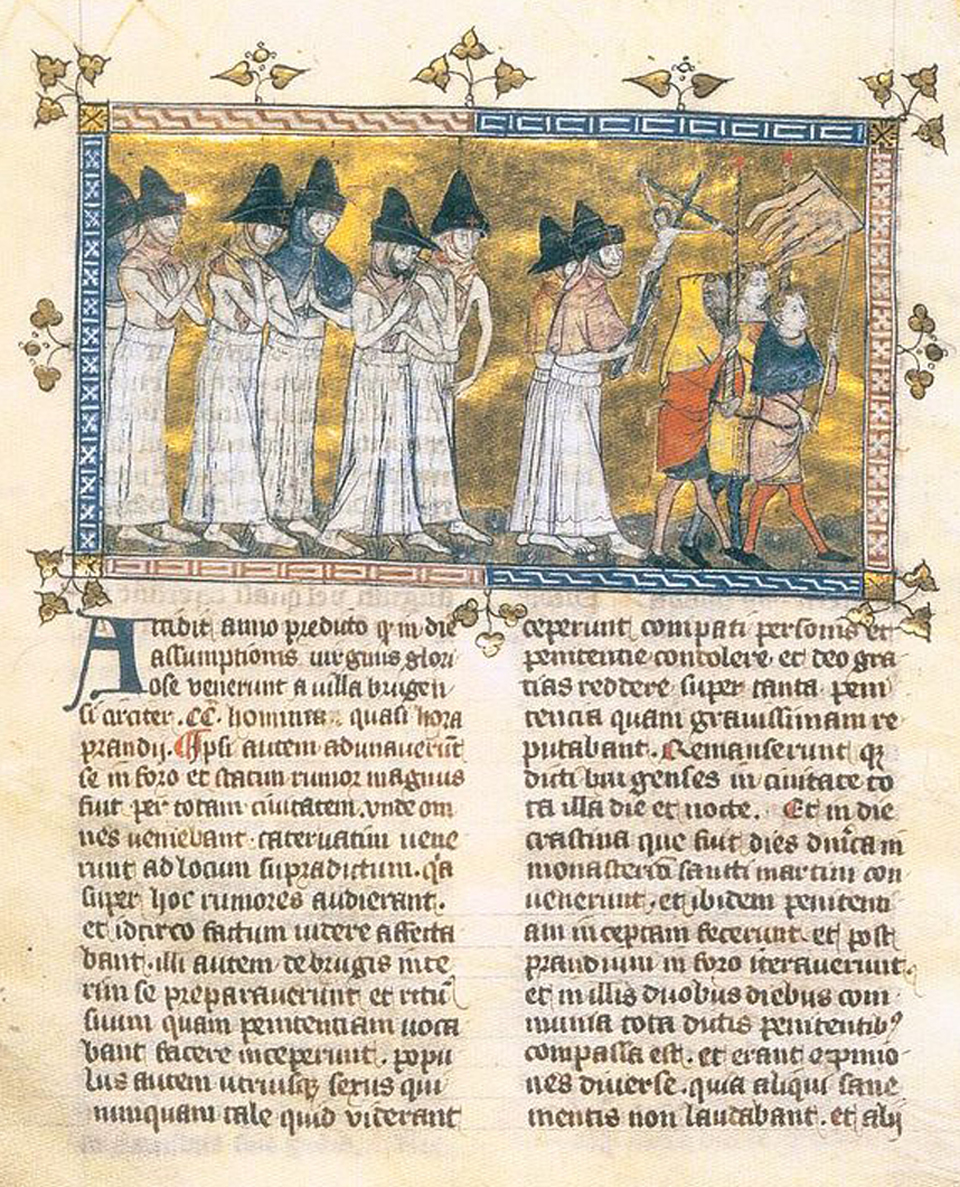 Accidit anno predicto q in die
assumptionis virginis glori
ose venerunt a villa brugen
si circiter .CC. homines quasi hora
prandij. Ipsi autem adunaverūt
se in foro et statim rumor magnus
fuit per totam civitatem. vnde om
nes veniebant catervatim vene
runt ad locum supradictum. qa
super hoc rumores audierant.
et idcirco factum videre affecta
bant. illi autem de brugis inte
rim se preparaverunt et ritū
suum quam penitentiam voca
bant facere inceperunt. popu
lus autem utriusq sexus qui
nunquam tale quid viderant
ceperunt compati personis et
penitentie condolere et deo gra
tias reddere super tanta peni
tencia quam gravissimam re
putabant. Remanserunt q
dicti brugenses in civitate to
ta illa die et nocte. Et in die
crastina que fuit dies dnīca in
monasterio sancti martini con
venerunt. et ibidem penitenti
am inceptam fecerunt. et post
prandium in foro iteraverunt.
et in illis duobus diebus com
munia tota dictis penitentib9
compassa est. et erant opinio
nes diverse. quia aliqui sane
mentis non laudabant. et alij